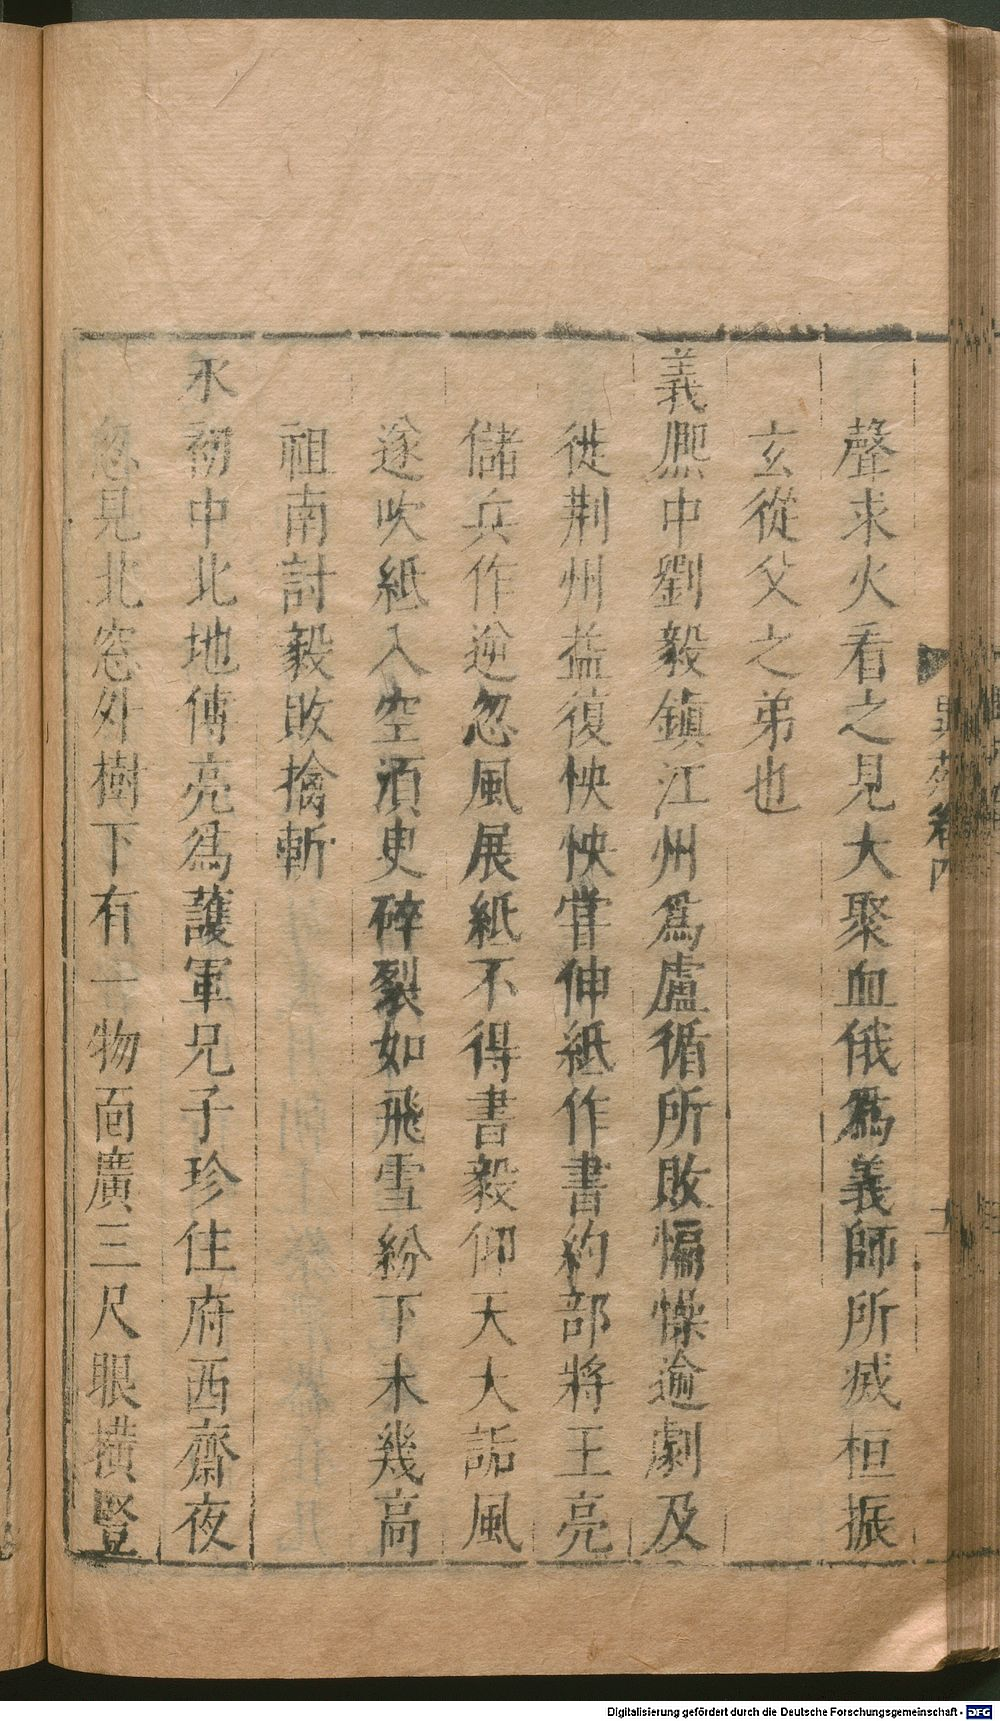 聲求火看之見大聚血俄爲義師所滅桓振
玄從父之弟也
義熈中劉毅鎮江州爲盧循所敗愊懆逾劇及
徙荆州益復怏怏嘗伸紙作書約部將王亮
儲兵作逆忽風展紙不得書毅仰天大詬風
遂吹紙入空湏臾碎裂如飛雪紛下未幾高
祖南討毅敗擒斬
永初中北地傅亮爲護軍兄子珍住府西齋夜
忽見北窓外樹下有一物面廣三尺眼横豎
Digitalisierung gefördert durch die Deutsche Forschungsgemeinschaft - DFG